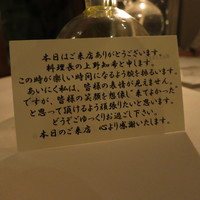 本日はご来店ありがとうございます。
料理長の上野知希と申します。
この時が愉しい時間になるよう腕を揮います。
あいにく私は、皆様の表情が見えません。
ですが、皆様の笑顔を想像し"来てよかった"
と思って頂けるよう頑張りたいと思います。
どうぞごゆっくりお過ごし下さい。
本日のご来店 心より感謝いたします。